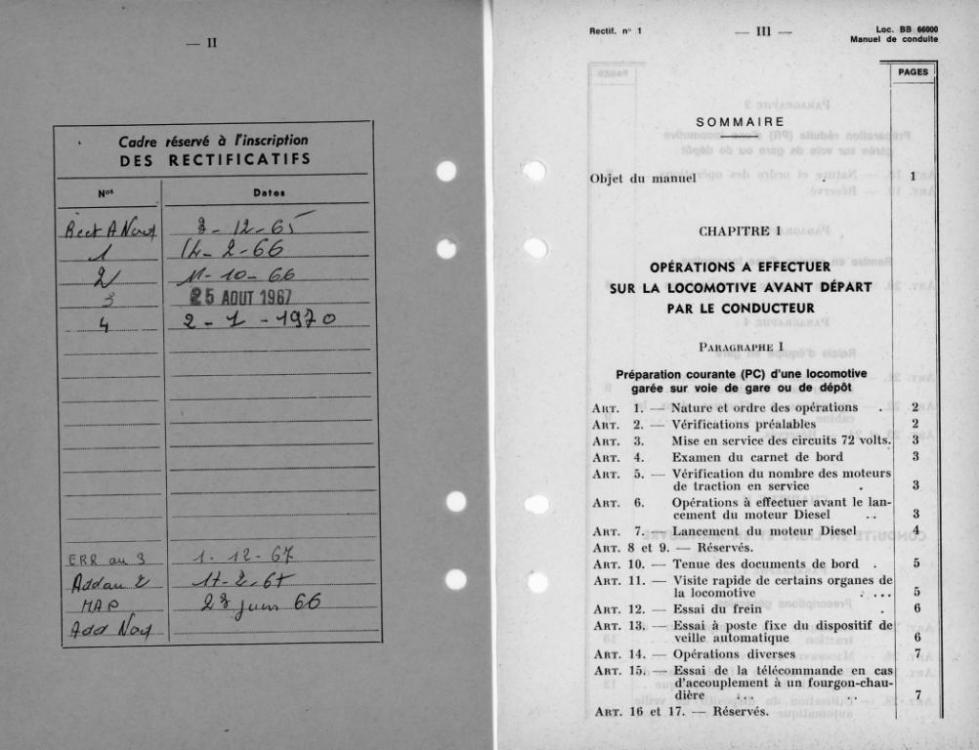 — II
Cadre réservé à l'inscription
DES RECTIFICATIFS
Nos Dates
Rect A 3-12-65
1 14-2-66
2 11-10-66
3 25 AOUT 1967
4 2-1-1970
ERR au 3 1-12-67
Add au 2 17-2-67
MAP 28 juin 66
Add
Rectif. n° 1 — III — Loc. BB 66000
Manuel de conduite
PAGES
SOMMAIRE
Objet du manuel . 1
CHAPITRE I
OPÉRATIONS A EFFECTUER
SUR LA LOCOMOTIVE AVANT DÉPART
PAR LE CONDUCTEUR
PARAGRAPHE I
Préparation courante (PC) d'une locomotive
garée sur voie de gare ou de dépôt
ART. 1. — Nature et ordre des opérations . 2
ART. 2. — Vérifications préalables 2
ART. 3. Mise en service des circuits 72 volts. 3
ART. 4. Examen du carnet de bord 3
ART. 5. — Vérification du nombre des moteurs
de traction en service . 3
ART. 6. Opérations à effectuer avant le lan-
cement du moteur Diesel .. 3
ART. 7. — Lancement du moteur Diesel 4
ART. 8 et 9. — Réservés.
ART. 10. — Tenue des documents de bord . 5
ART. 11. — Visite rapide de certains organes de
la locomotive . ... 5
ART. 12. — Essai du frein . 6
ART. 13. — Essai à poste fixe du dispositif de
veille automatique 6
ART. 14. — Opérations diverses 7
ART. 15. — Essai de la télécommande en cas
d'accouplement à un fourgon-chau-
dière ... .. 7
ART. 16 et 17. — Réservés.